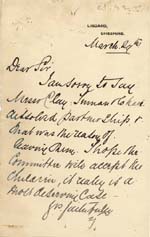 LISCARD,
CHESHIRE.
March 29th
Dear Sir
I am sorry to say
Messrs Clay, Inman & Co have
dissolved partnership &
that was the reason of
leaving them. I hope the
Committee will accept the
Children, it really is a
most deserving Case
Yrs faithfully